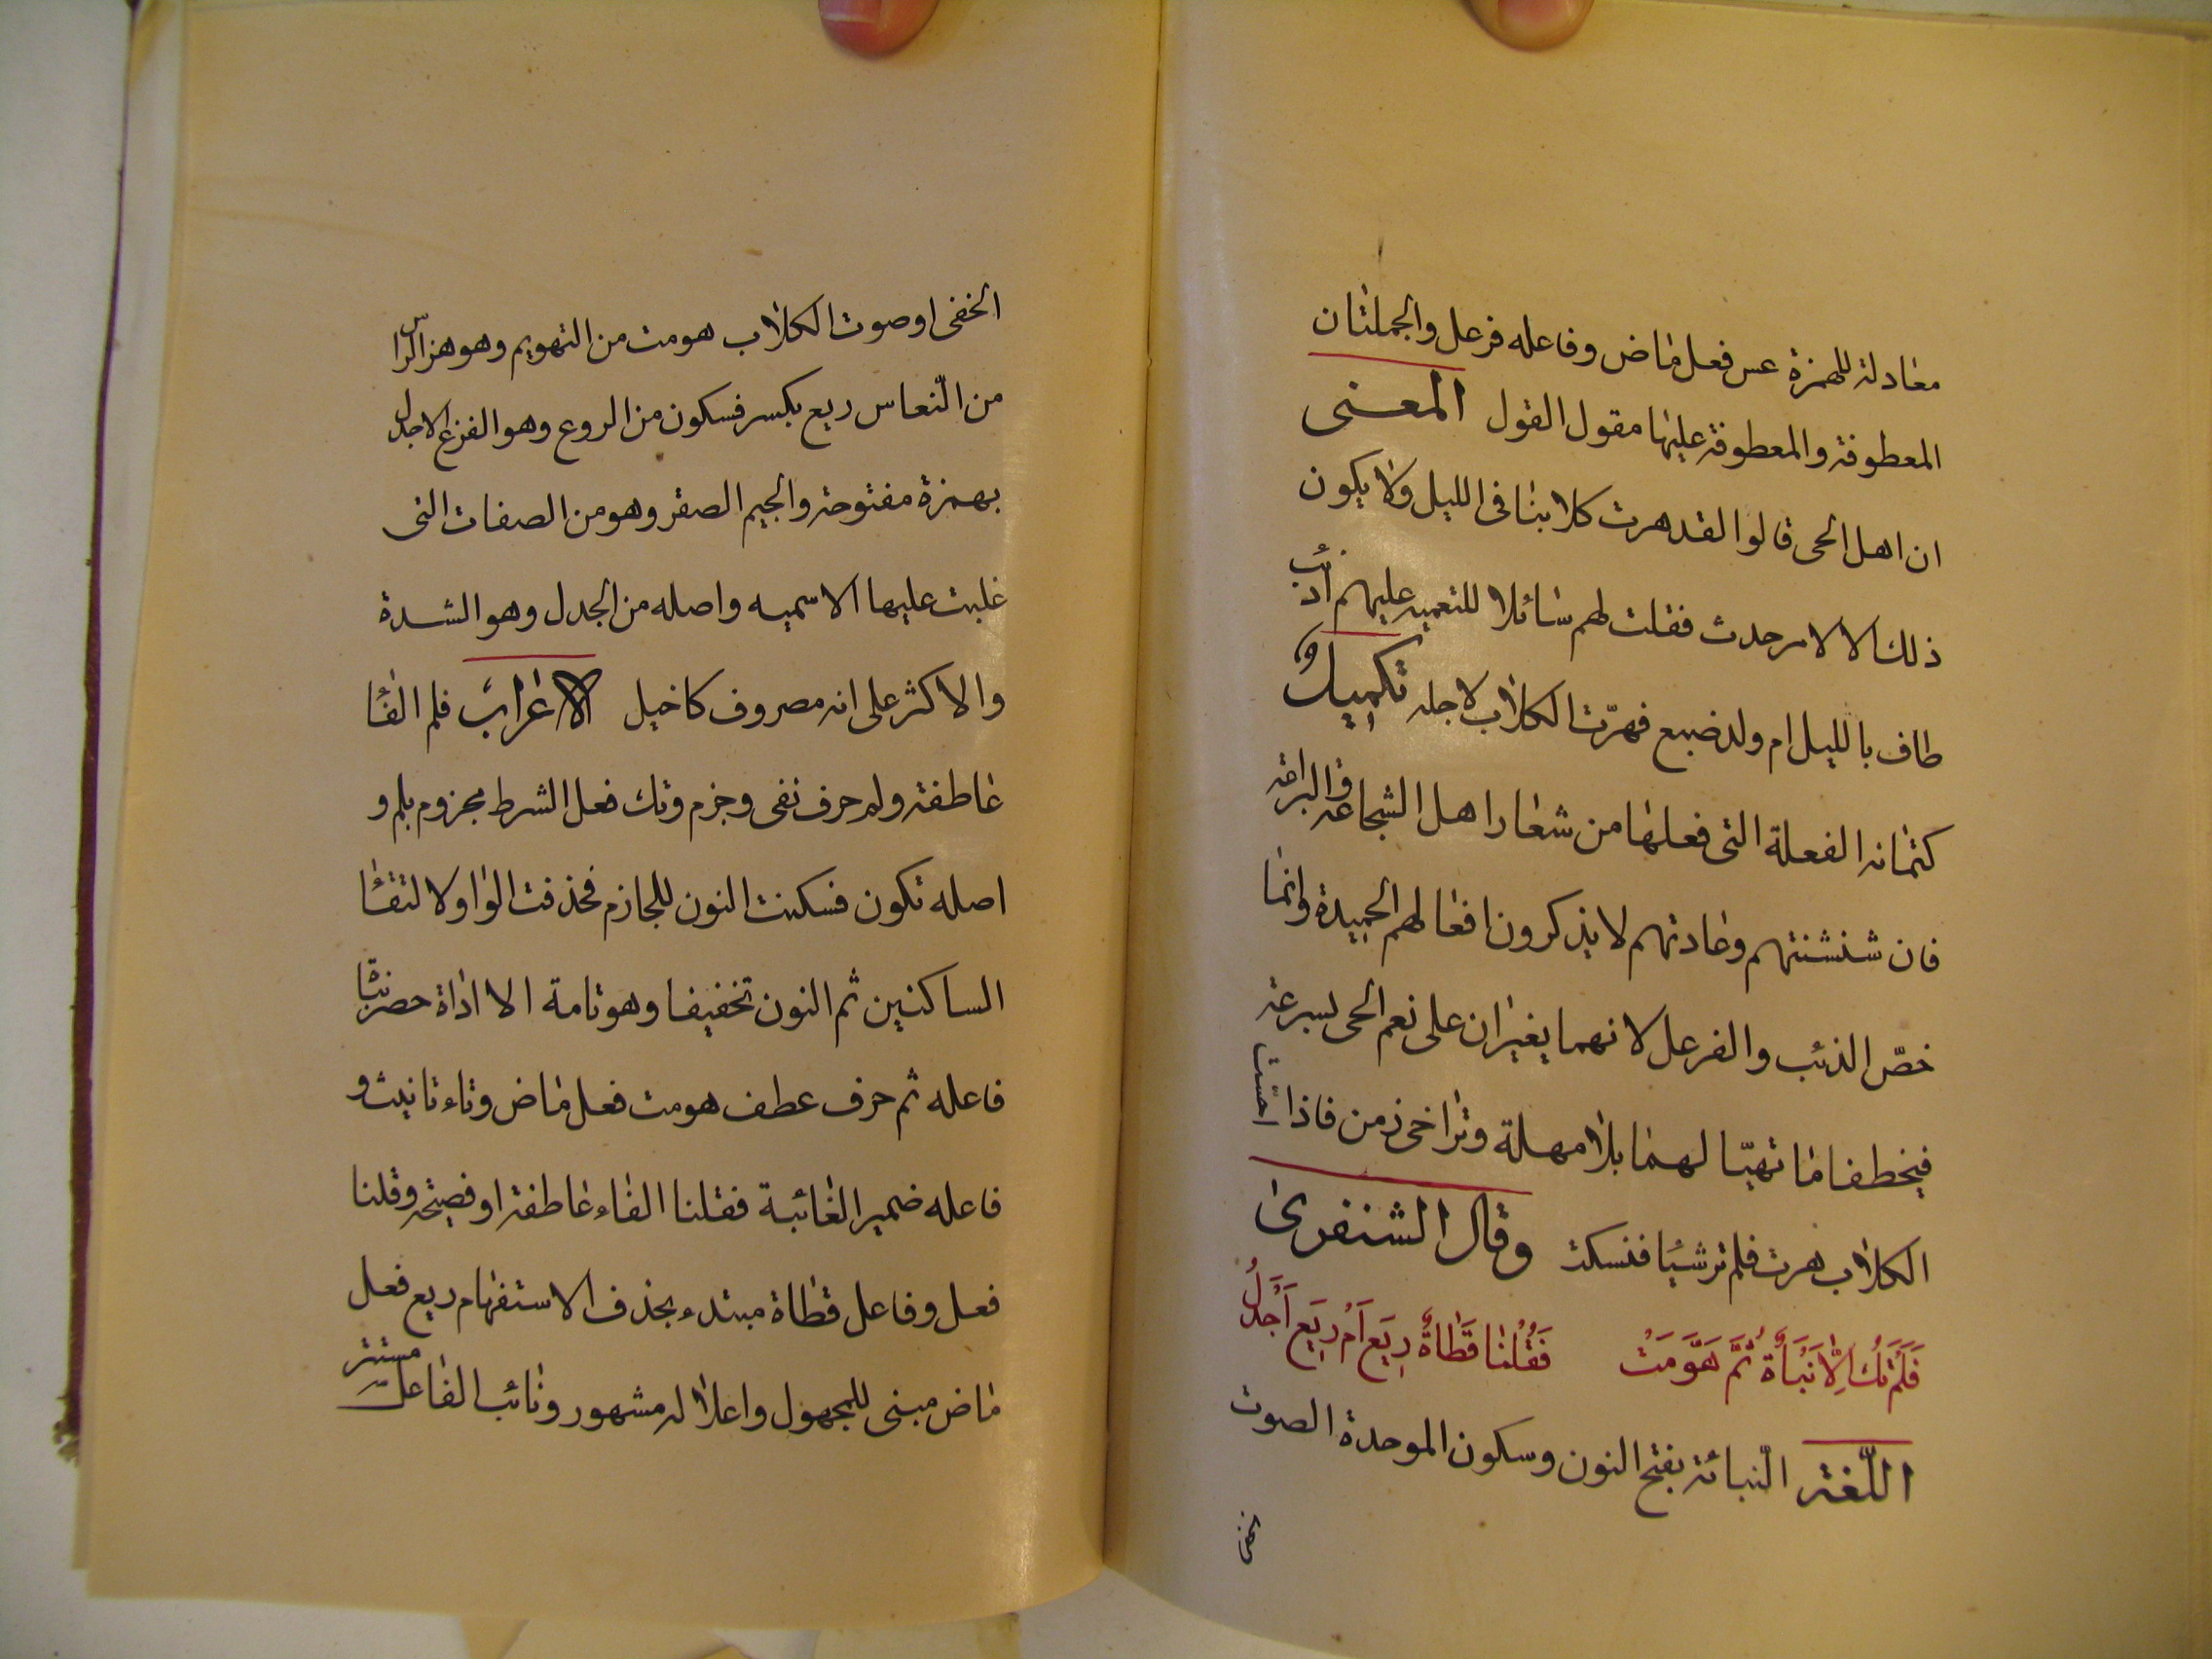 معادلة للهمزة عس فعل ماض وفاعله فرعل والجملتان
المعطوفة والمعطوفة عليها مقول القول المعنى
ان اهل الحى قالوا لقد هرت كلابنا فى الليل ولا يكون
ذلك الا لامر حدث فقلت لهم سائلا للتعمية عليهم أذئب
طاف بالليل ام ولد ضبع فهرّت الكلاب لاجله تكميل و
كتمانه الفعلة التى فعلها من شعار اهل الشجاعة والبراعة
فان شنشنتهم وعادتهم لا يذكرون افعالهم الحميدة وانما
خصّ الذئب والفرعل لانهما يغيران على نعم الحى بسرعة
فيخطفا ما تهيّا لهما بلا مهلة وتراخى زمن فاذا احسّت
الكلاب هرت فلم تر شيئا فتسكت وقال الشنفرى
فَلَمْ تَكُ اِلَّا نَبْأَةٌ ثُمَّ هَوَّمَتْ فَقُلْنَا قَطَاةٌ رِيَع اَمْ رِيَع اَجْدَلُ
اللّغة النّبائة بفتح النون وسكون الموحدة الصوت
الخفى
الخفى او صوت الكلاب هومت من التهويم وهو هز الراس
من النّعاس ريع بكسر فسكون من الروع وهو الفزع الاجدل
بهمزة مفتوحة والجيم الصقر وهو من الصفات التى
غلبت عليها الاسميه واصله من الجدل وهو الشدة
والاكثر على انه مصروف كاخيل الاعراب فلم الفا
عاطفة ولم حرف نفى وجزم وتك فعل الشرط مجزوم بلم و
اصله تكون فسكنت النون للجازم فحذفت الواو لالتقا
الساكنين ثم النون تخفيفا وهو تامة الا اداة حصر نباة
فاعله ثم حرف عطف هومت فعل ماض وتاء تانيث و
فاعله ضمير الغائبة فقلنا الفاء عاطفة او فصيحة وقلنا
فعل وفاعل قطاة مبتدء بحذف الاستفهام ريع فعل
ماض مبنى للمجهول واعلاله مشهور ونائب الفاعل مستتر